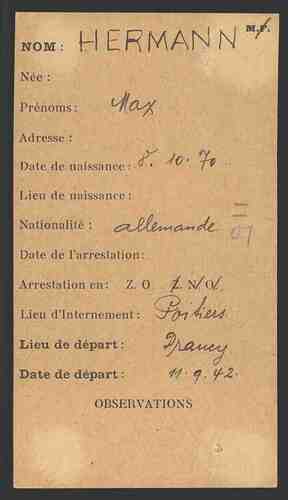 M. F.
NOM : HERMANN
Née :
Prénoms : Max
Adresse :
Date de naissance : 8. 10. 70
Lieu de naissance :
Nationalité : allemande
Date de l'arrestation :
Arrestation en : Z. O Z. N/O/.
Lieu d'Internement : Poitiers
Lieu de départ : Drancy
Date de départ : 11. 9. 42.
OBSERVATIONS